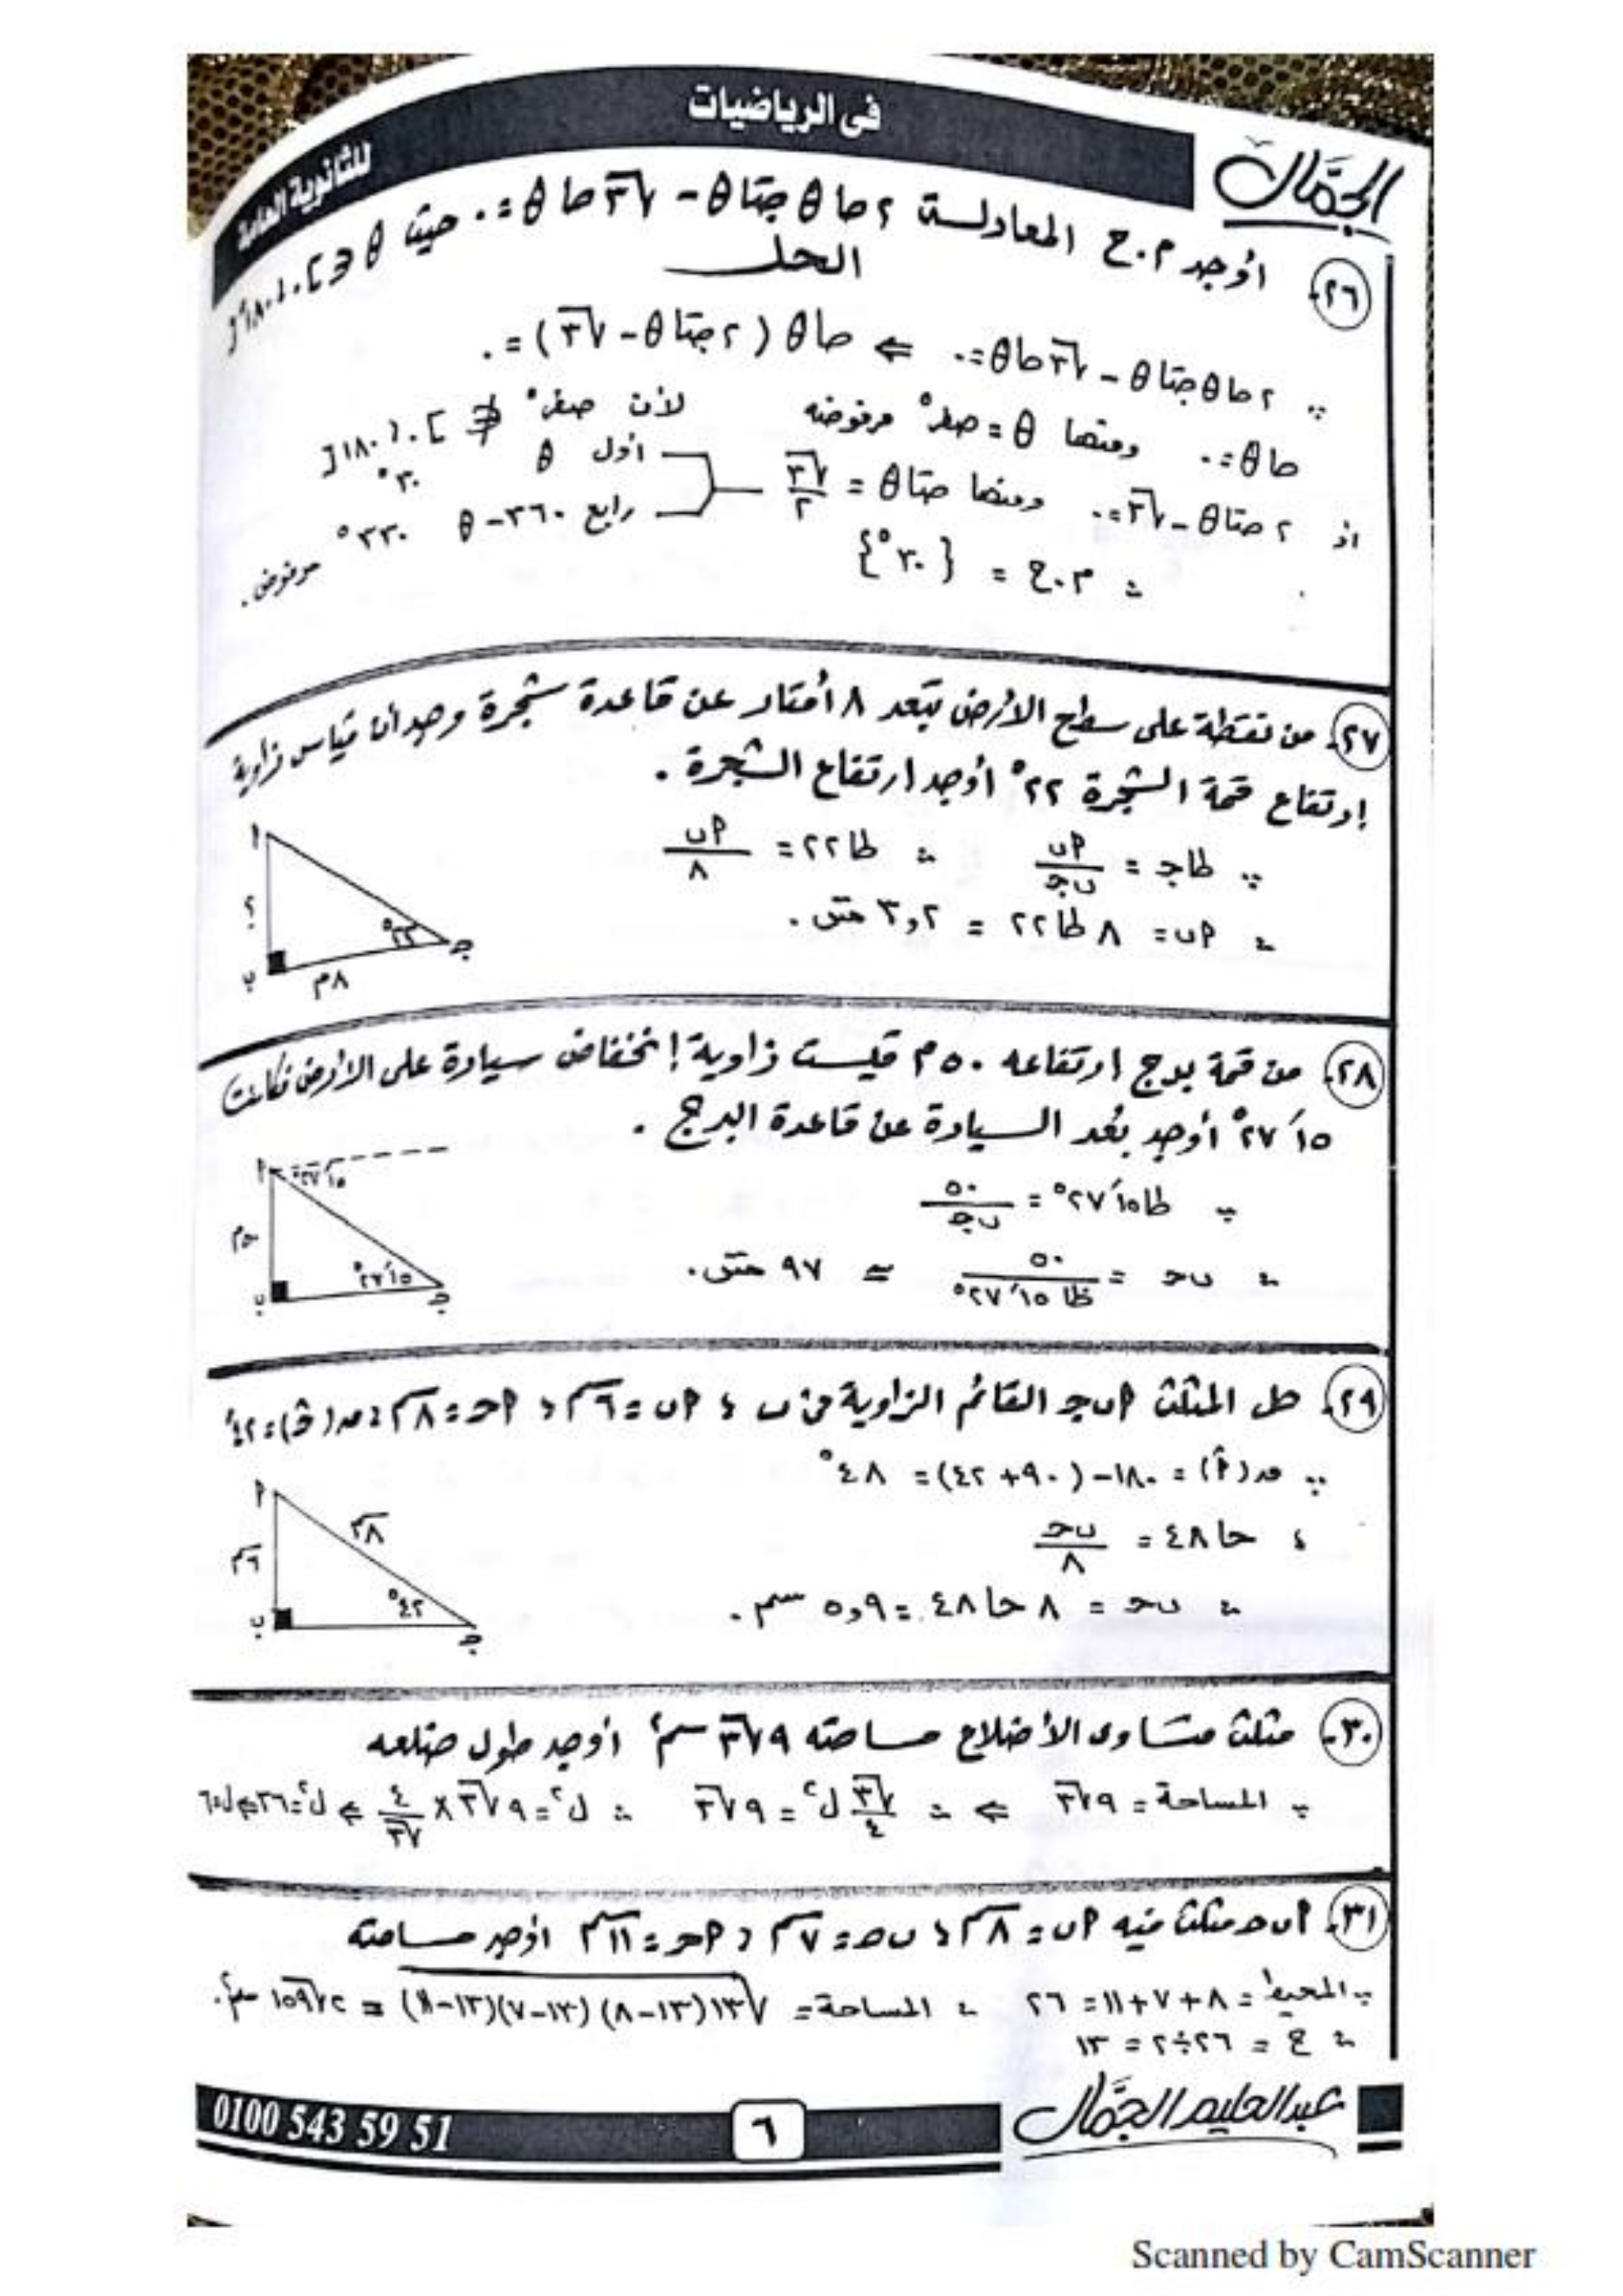 فى الرياضيات
للثانوية العامة
الجمّال
٢٦ أوجد م.ح المعادلة ٢ حا θ جتا θ - √٣ حا θ = ٠ حيث θ ∈ ]٠ ، ١٨٠°[
الحل
∵ ٢ حا θ جتا θ - √٣ حا θ = ٠ ⇐ حا θ (٢ جتا θ - √٣) = ٠
حا θ = ٠ ومنها θ = صفر° مرفوضه لأن صفر° ∉ ]٠ ، ١٨٠[
أو ٢ حتا θ - √٣ = ٠ ومنها حتا θ = √٣/٢ أول θ ٣٠° رابع ٣٦٠ - θ ٣٣٠° مرفوض .
∴ م.ح = {٣٠°}
٢٧ من نقطة على سطح الأرض تبعد ٨ أمتار عن قاعدة شجرة وجد أن قياس زاوية
إرتفاع قمة الشجرة ٢٢° أوجد ارتفاع الشجرة .
∵ طا جـ = أب/ب جـ ∴ طا ٢٢ = أب/٨
∴ أب = ٨ طا ٢٢ = ٣,٢ متر .
أ
؟
ب
٨م
٢٢°
جـ
٢٨ من قمة برج ارتفاعه ٥٠ م قيست زاوية إنخفاض سيارة على الأرض فكانت
١٥َ ٢٧° أوجد بُعد السيارة عن قاعدة البرج .
∵ طا ١٥َ ٢٧° = ٥٠/ب جـ
∴ ب جـ = ٥٠/طا ١٥َ ٢٧° ≃ ٩٧ متر .
أ
١٥َ ٢٧°
٥٠م
ب
١٥َ ٢٧°
جـ
٢٩ حل المثلث أ ب جـ القائم الزاوية فى ب ، أب = ٦ سم ، أجـ = ٨ سم ، ق(جـ) = ٤٢°
∵ ق(أ) = ١٨٠ - (٩٠ + ٤٢) = ٤٨°
، حا ٤٨ = ب جـ/٨
∴ ب جـ = ٨ حا ٤٨ = ٥,٩ سم .
أ
٨سم
٦سم
٤٢°
ب
جـ
٣٠ مثلث متساوى الأضلاع مساحته ٩√٣ سم٢ أوجد طول ضلعه
∵ المساحة = ٩√٣ ⇐ ∴ √٣/٤ ل٢ = ٩√٣ ∴ ل٢ = ٩√٣ × ٤/√٣ ⇐ ل٢ = ٣٦ ⇐ ل = ٦
٣١ أ ب جـ مثلث فيه أب = ٨ سم ، ب جـ = ٧ سم ، أجـ = ١١ سم أوجد مساحته
∵ المحيط = ٨ + ٧ + ١١ = ٢٦ ∴ المساحة = √١٣(١٣-٨)(١٣-٧)(١٣-١١) = ٢√١٩٥ سم٢ .
∴ ح = ٢٦ ÷ ٢ = ١٣
عبدالحليم الجمّال
٦
0100 543 59 51
Scanned by CamScanner